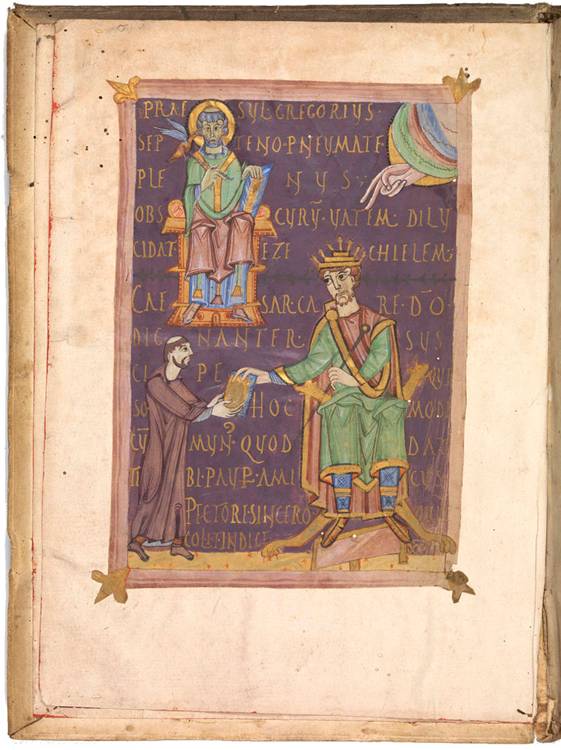 PRAE SVL GREGORIVS·
SEP TENO·PNEUMATE
PLE NVS;
OBS CVRṼ·VATEM·DILV
CIDAT EZE CHIELEM;
CAE SAR·CA RE·DO·
DIG NANTER· SVS
CI PE
HOC MODI
CṼ MVN· QUOD DAT
TI BI·PAVP AMI CVS
PECTORI·SINCERO
COLIT·INDICE